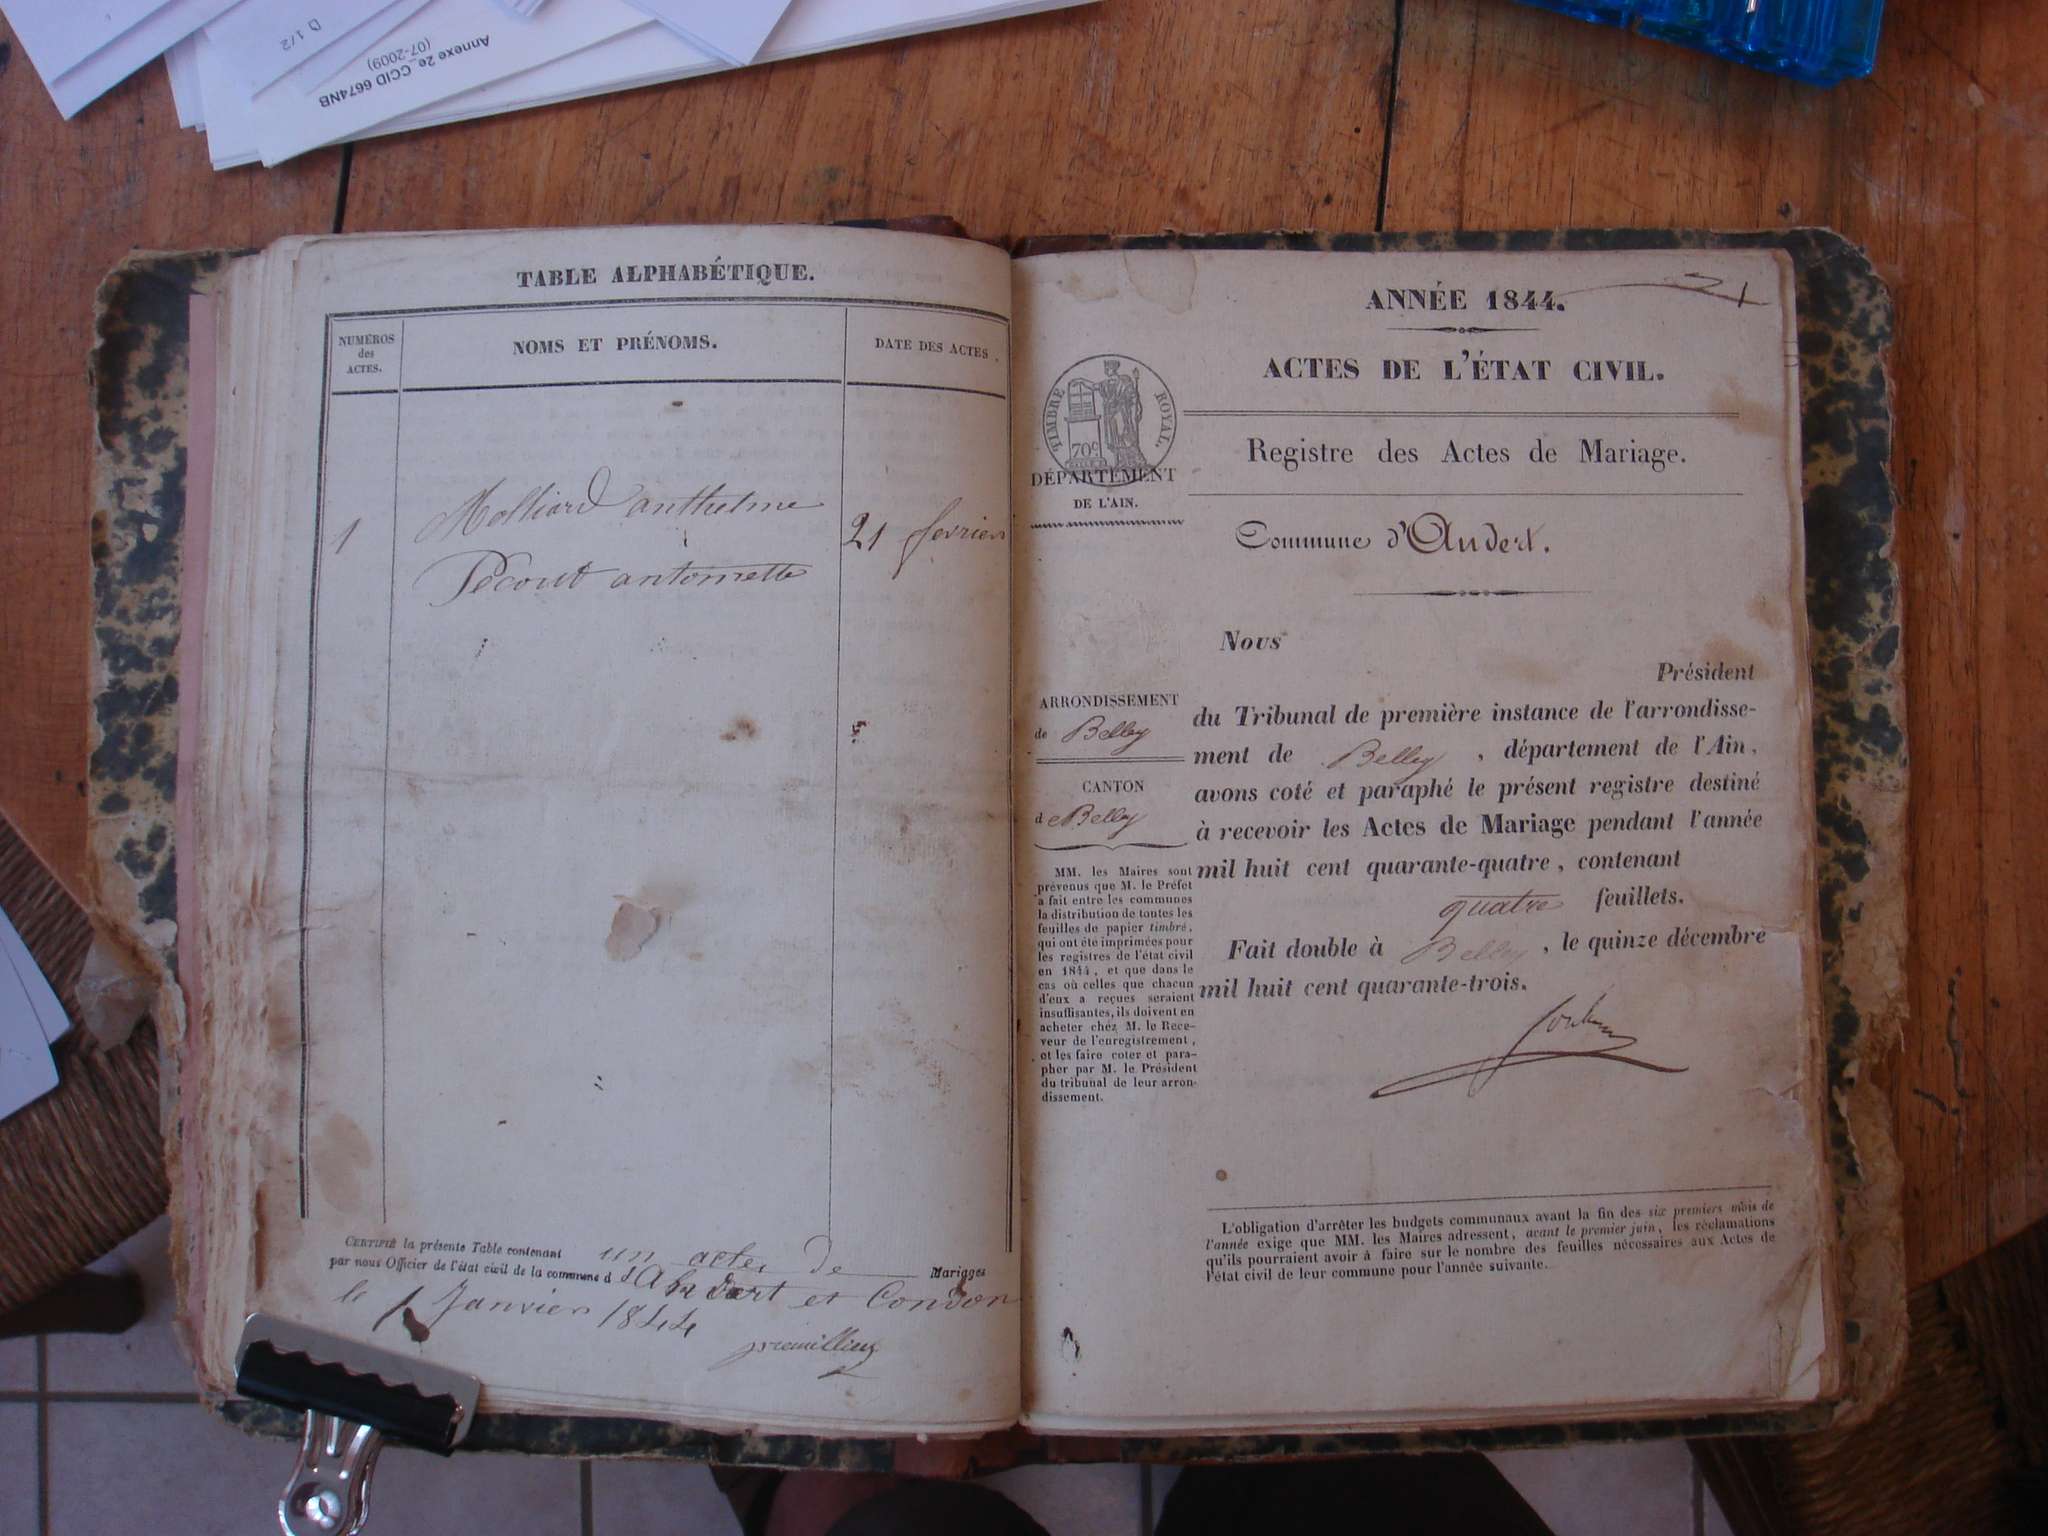 D 1/2
Annexe 2e_CCID 6674NB
(07-2009)
TABLE ALPHABÉTIQUE.
NUMÉROS
des
ACTES.
NOMS ET PRÉNOMS.
DATE DES ACTES.
Molliard anthelme
1
21 fevrier
Pecout antoinette
CERTIFIÉ la présente Table contenant un actes de Mariages
par nous Officier de l'état civil de la commune d'Andert et Condon
le 1 Janvier 1844
ANNÉE 1844.
ACTES DE L'ÉTAT CIVIL.
TIMBRE ROYAL.
70c
DÉPARTEMENT
DE L'AIN.
Registre des Actes de Mariage.
Commune d'Andert.
Nous
Président
du Tribunal de première instance de l'arrondisse-
ment de Belley, département de l'Ain,
avons coté et paraphé le présent registre destiné
à recevoir les Actes de Mariage pendant l'année
mil huit cent quarante-quatre, contenant
quatre feuillets.
Fait double à Belley, le quinze décembre
mil huit cent quarante-trois.
ARRONDISSEMENT
de Belley
CANTON
de Belley
MM. les Maires sont
prévenus que M. le Préfet
a fait entre les communes
la distribution de toutes les
feuilles de papier timbré,
qui ont été imprimées pour
les registres de l'état civil
en 1844, et que dans le
cas où celles que chacun
d'eux a reçues seraient
insuffisantes, ils doivent en
acheter chez M. le Rece-
veur de l'enregistrement,
et les faire coter et para-
pher par M. le Président
du tribunal de leur arron-
dissement.
L'obligation d'arrêter les budgets communaux avant la fin des six premiers mois de
l'année exige que MM. les Maires adressent, avant le premier juin, les réclamations
qu'ils pourraient avoir à faire sur le nombre des feuilles nécessaires aux Actes de
l'état civil de leur commune pour l'année suivante.